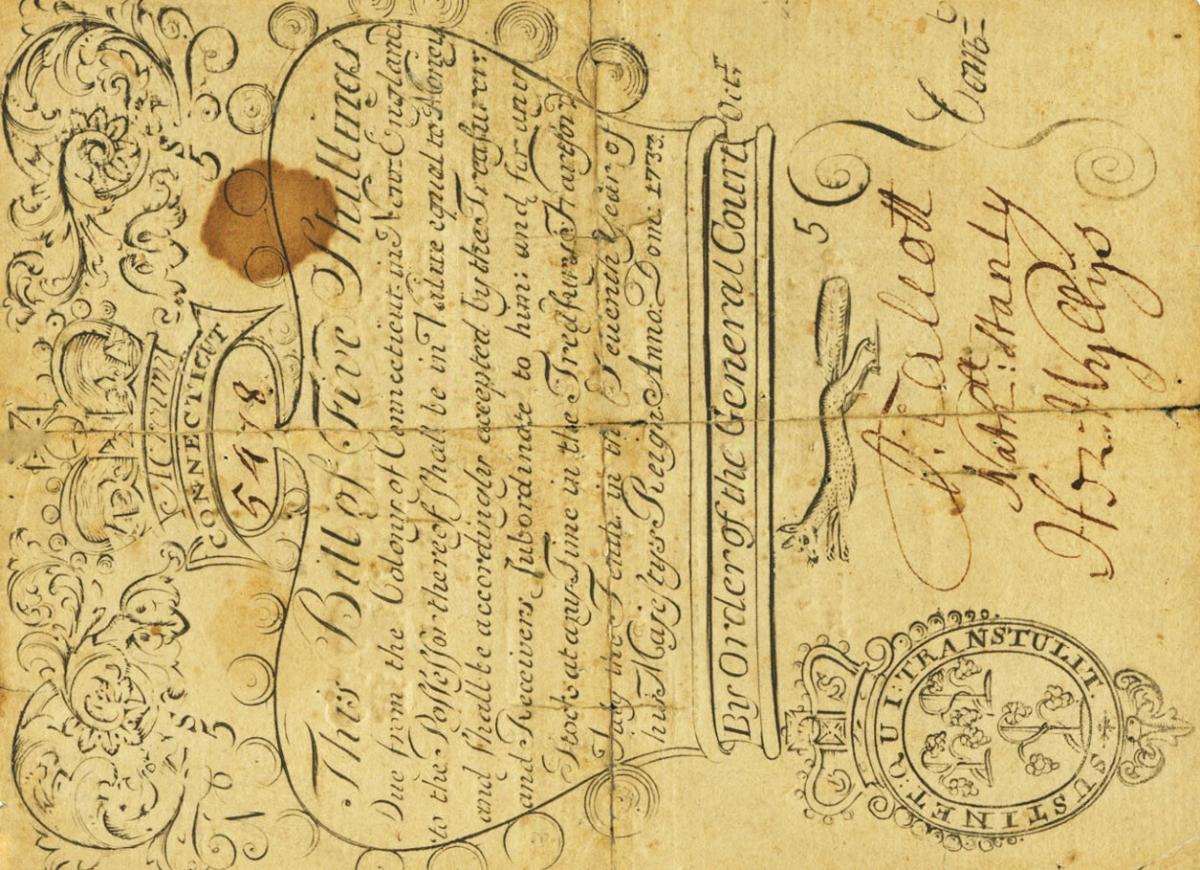 CONNECTICUT
5478
5 S
5 S
This Bill of Five Shillings
Due from the Colony of Connecticut in New-England
to the Possessor thereof Shall be in Value equal to Money
and Shall be accordingly accepted by the Treasurer:
and Receivers, Subordinate to him: and for any
Stock at any Time in the Treasury. Hartford
July the Tenth in the Seuenth Year of
his Majestys Reign Anno: Dom: 1733.
By Order of the General Court Vizt.
5
QUI: TRANSTULIT. SUSTINET
J: Talcott
Nath: Stanly
Hez: Wyllys
Com=